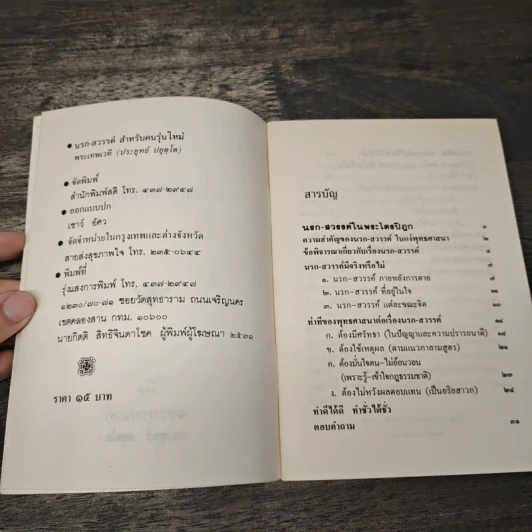 ● นรก-สวรรค์ สำหรับคนรุ่นใหม่
พระเทพเวที (ประยุทธ์ ปยุตฺโต)
● จัดพิมพ์
สำนักพิมพ์สติ โทร. ๔๓๗-๒๙๔๗
● ออกแบบปก
เชาว์ อัศว
● จัดจำหน่ายในกรุงเทพและต่างจังหวัด
สายส่งสุขภาพใจ โทร. ๒๓๕-๐๖๔๔
● พิมพ์ที่
รุ่งแสงการพิมพ์ โทร. ๔๓๗-๒๙๔๗
๑๒๓๐/๗๐-๗๑ ซอยวัดสุทธาราม ถนนเจริญนคร
เขตคลองสาน กทม. ๑๐๖๐๐
นายกิตติ สิทธิจินดาโชค ผู้พิมพ์ผู้โฆษณา ๒๕๓๑
ราคา ๑๕ บาท
สารบัญ
นรก-สวรรค์ในพระไตรปิฎก ๑
ความสำคัญของนรก-สวรรค์ ในแง่พุทธศาสนา ๒
ข้อพิจารณาเกี่ยวกับเรื่องนรก-สวรรค์ ๔
นรก-สวรรค์มีจริงหรือไม่ ๗
๑. นรก-สวรรค์ ภายหลังการตาย ๗
๒. นรก-สวรรค์ ที่อยู่ในใจ
๓. นรก-สวรรค์ แต่ละขณะจิต
ท่าทีของพุทธศาสนาต่อเรื่องนรก-สวรรค์
ก. ต้องมีศรัทธา (ในปัญญาและความปรารถนาดี)
ข. ต้องใช้เหตุผล (ตามแนวกาลามสูตร) ๒๑
ค. ต้องมั่นใจตน-ไม่อ้อนวอน
(เพราะรู้-เข้าใจกฎธรรมชาติ)
ง. ต้องไม่หวังผลตอบแทน (เป็นอริยสาวก) ๒๔
ทำดีได้ดี ทำชั่วได้ชั่ว
ตอบคำถาม ๓๑